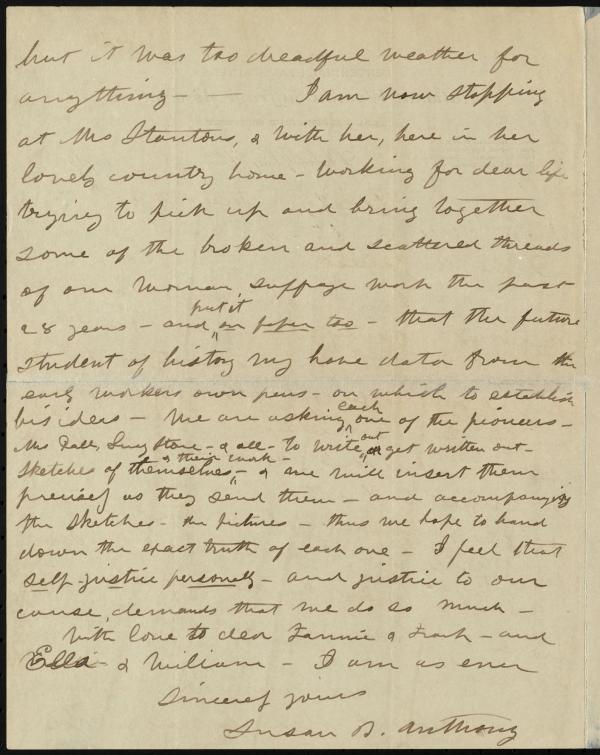 but it was too dreadful weather for
anything - - I am now stopping
at Mrs Stantons, & with her, here in her
lovely country home - working for dear life
trying to pick up and bring together
some of the broken and scattered threads
of our Woman suffrage work the past
28 years - and put it on paper too - that the future
student of history my have data from the
early workers own pens - on which to establish
his ideas - We are asking each one of the pioneers -
Mrs Dall, Lucy Stone - & all - to write out or get written out -
sketches of themselves & their work - & we will insert them
precisely as they send them - and accompanying
the sketches - the pictures - thus we hope to hand
down the exact truth of each one - I feel that
self-justice personally - and justice to our
cause, demands that we do so much -
With love to dear Fannie & Frank - and
Ella - & William - I am as ever
Sincerely yours
Susan B. Anthony